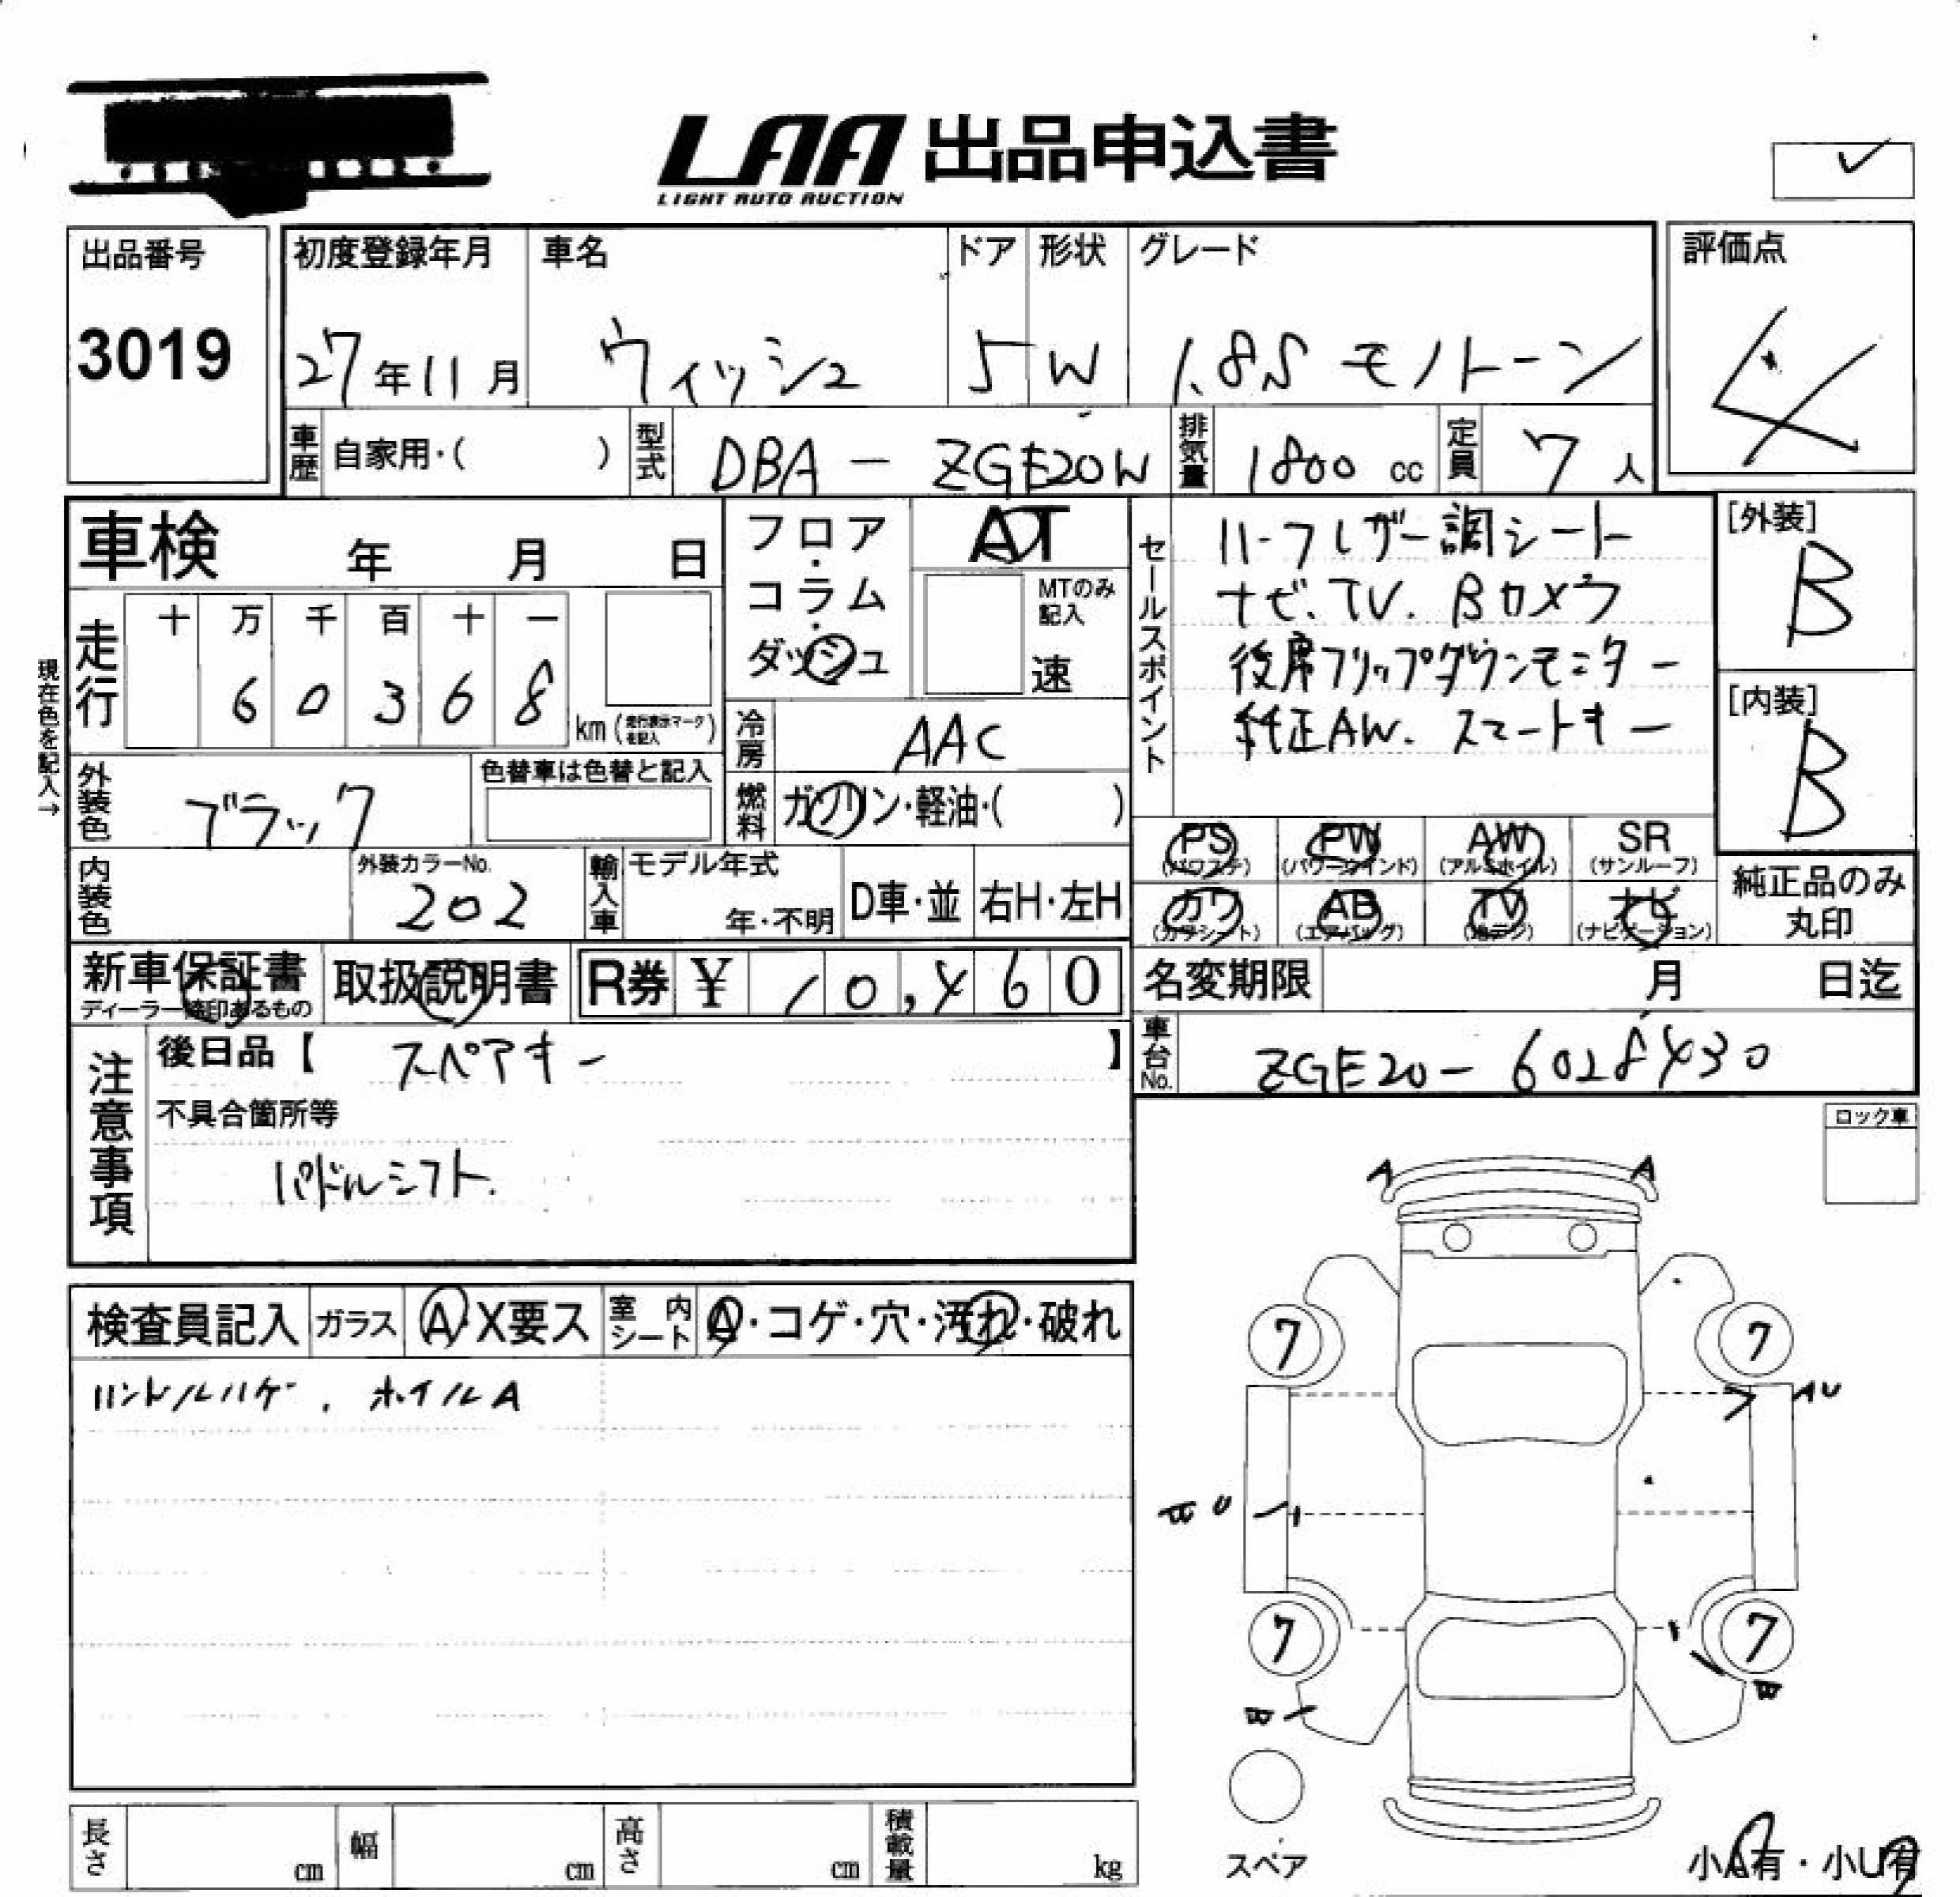 LAA 出品申込書
LIGHT AUTO AUCTION
✓
出品番号
3019
初度登録年月
27年11月
車名
ウィッシュ
ドア
5
形状
W
グレード
1.8S モノトーン
評価点
4
車歴
自家用・( )
型式
DBA - ZGE20W
排気量
1800 cc
定員
7人
車検 年 月 日
フロア・コラム・ダッシュ
AT
MTのみ記入
速
セールスポイント
ハーフレザー調シート
ナビ、TV. Bカメラ
後席フリップダウンモニター
純正AW. スマートキー
[外装]
B
[内装]
B
現在色を記入→
走行
十 万 千 百 十 一
6 0 3 6 8
km (走行表示マークを記入)
冷房
AAC
外装色
ブラック
色替車は色替と記入
燃料
ガソリン・軽油・( )
PS (パワステ)
PW (パワーウインド)
AW (アルミホイル)
SR (サンルーフ)
カワ (カワシート)
AB (エアバッグ)
TV (地デジ)
ナビ (ナビゲーション)
純正品のみ丸印
内装色
外装カラーNo.
202
輸入車
モデル年式
年・不明
D車・並
右H・左H
新車保証書
ディーラー捺印あるもの
取扱説明書
R券 ¥ 10,460
名変期限 月 日迄
注意事項
後日品【 スペアキー 】
車台No.
ZGE20-6028430
不具合箇所等
パドルシフト.
ロック車
A A
検査員記入
ガラス
A・X要ス
室内シート
A・コゲ・穴・汚れ・破れ
ハンドルハゲ . ホイルA
7 7
AU
7 7
スペア
長さ cm
幅 cm
高さ cm
積載量 kg
小A有・小U有